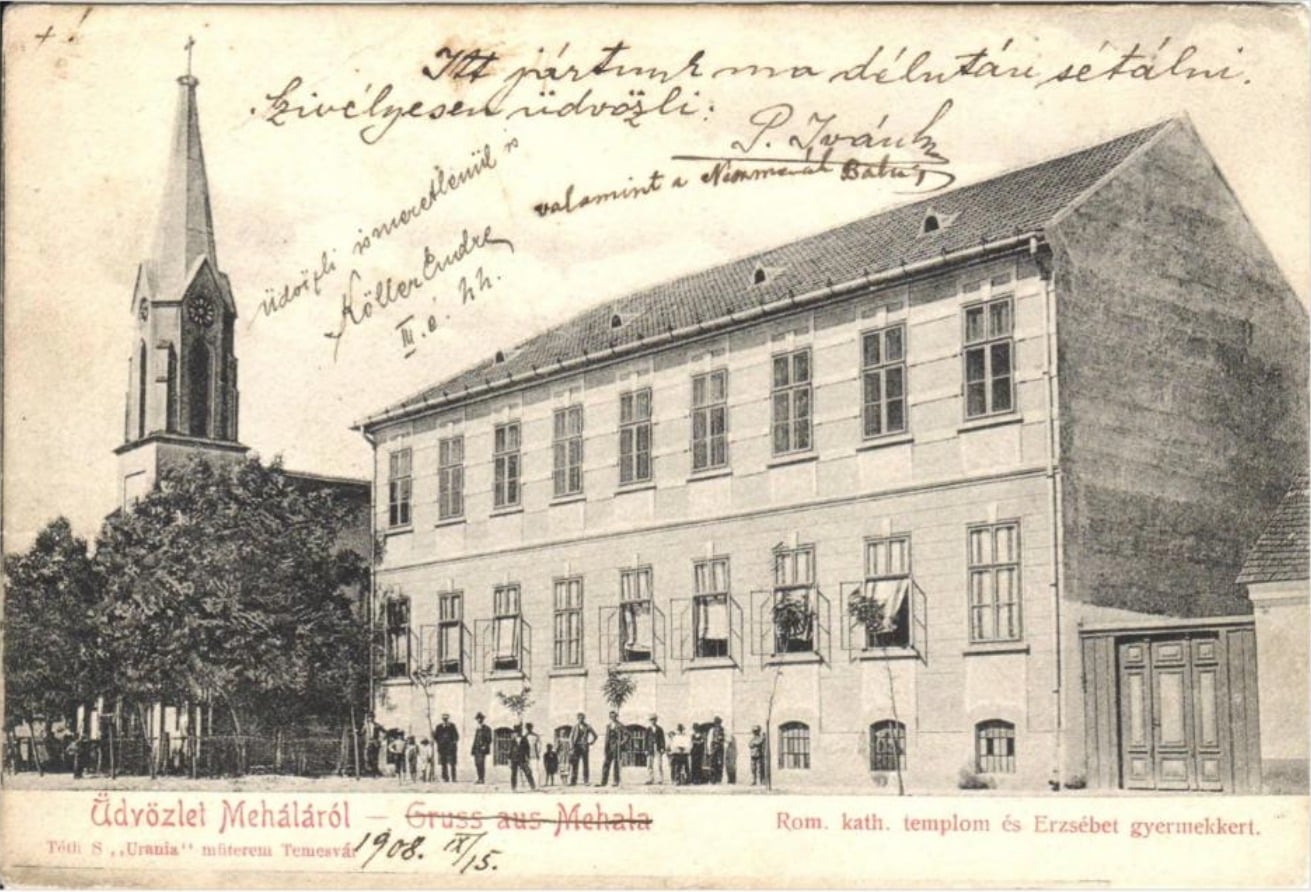 Itt jártunk ma délutáni sétálni.
Szivélyesen üdvözli:
P. Iván
valamint a
üdvözli ismeretlenül is
Köller Endre
III. é. hh.
Üdvözlet Meháláról — Gruss aus Mehala
Rom. kath. templom és Erzsébet gyermekkert.
Tóth S „Urania" műterem Temesvár
1908. IX/15.